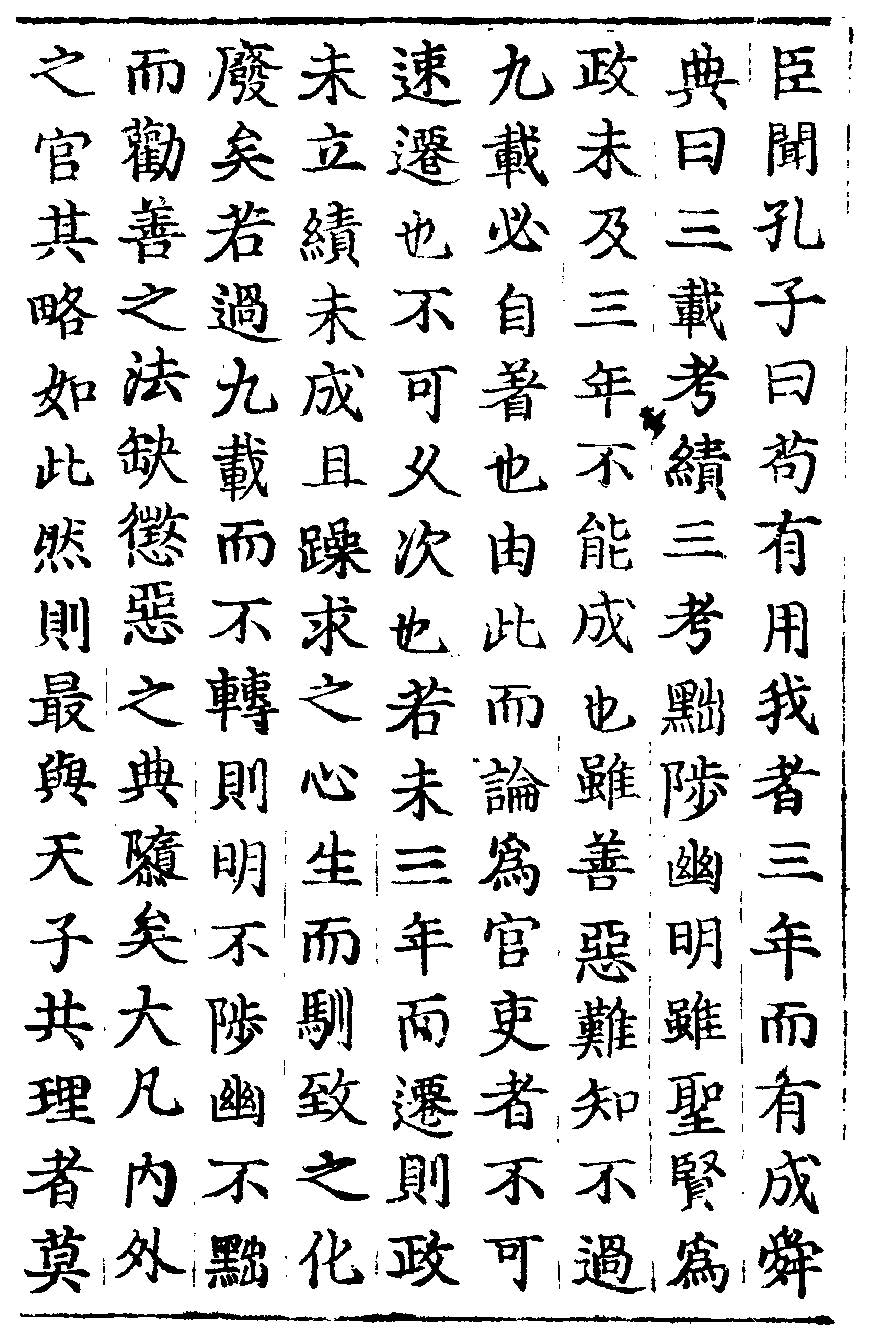 臣聞孔子曰苟有用我者三年而有成舜
典曰三載考績三考黜陟幽明雖聖賢爲
政未及三年不能成也雖善惡難知不過
九載必自著也由此而論爲官吏者不可
速遷也不可久次也若未三年而遷則政
未立績未成且躁求之心生而馴致之化
廢矣若過九載而不轉則明不陟幽不黜
而勸善之法缺懲惡之典隳矣大凡內外
之官其略如此然則最與天子共理者莫